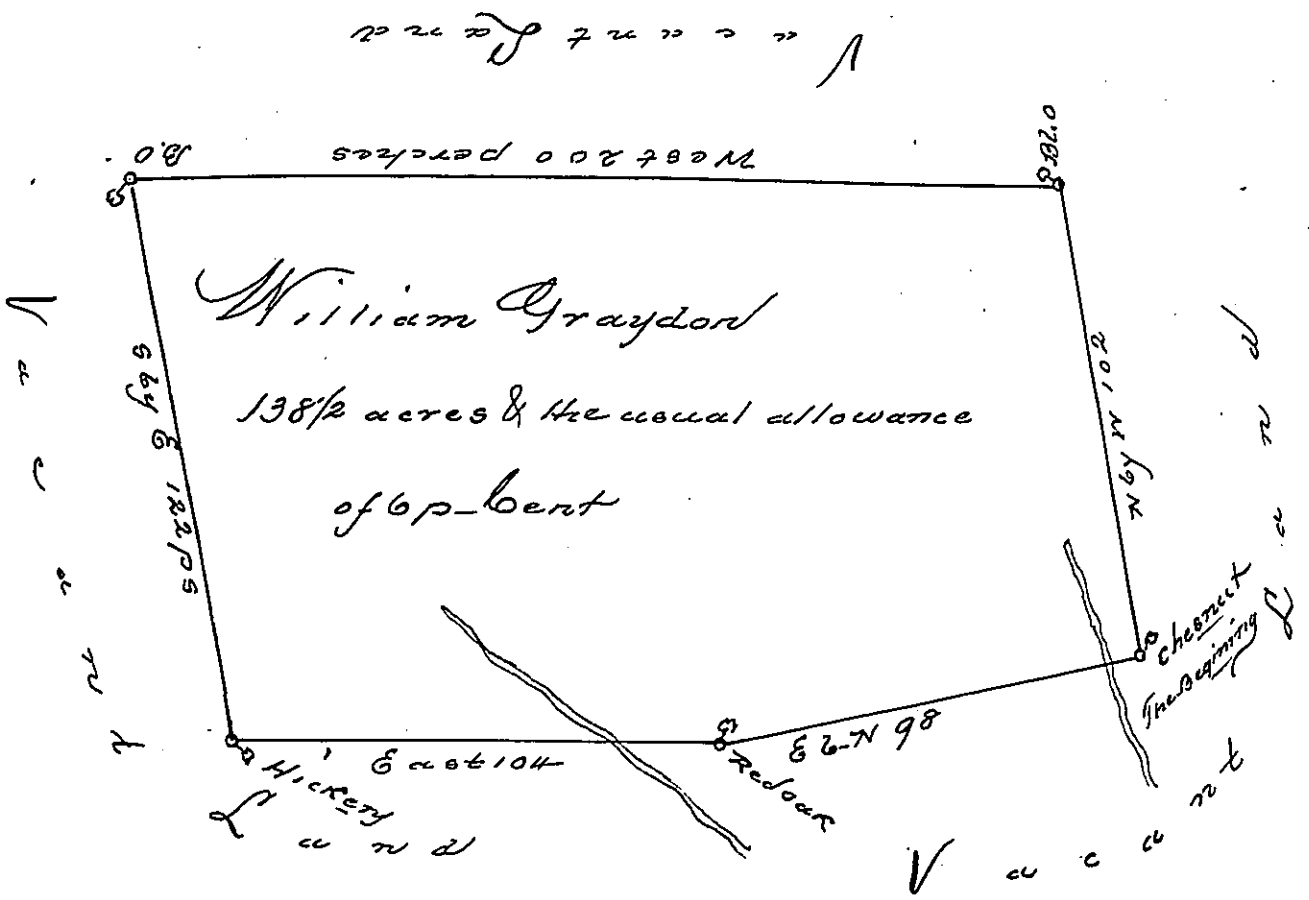 Vacant Land
B.O
West 200 perches
Bl.O
William Graydon
138 1/2 acres & the usual allowance
of 6 p Cent
S by E 122 ps
N by W 102
Chesnut
The Begining
E b N 98
Red oak
East 104
Hickery
Vacant
Land
Vacant
Land